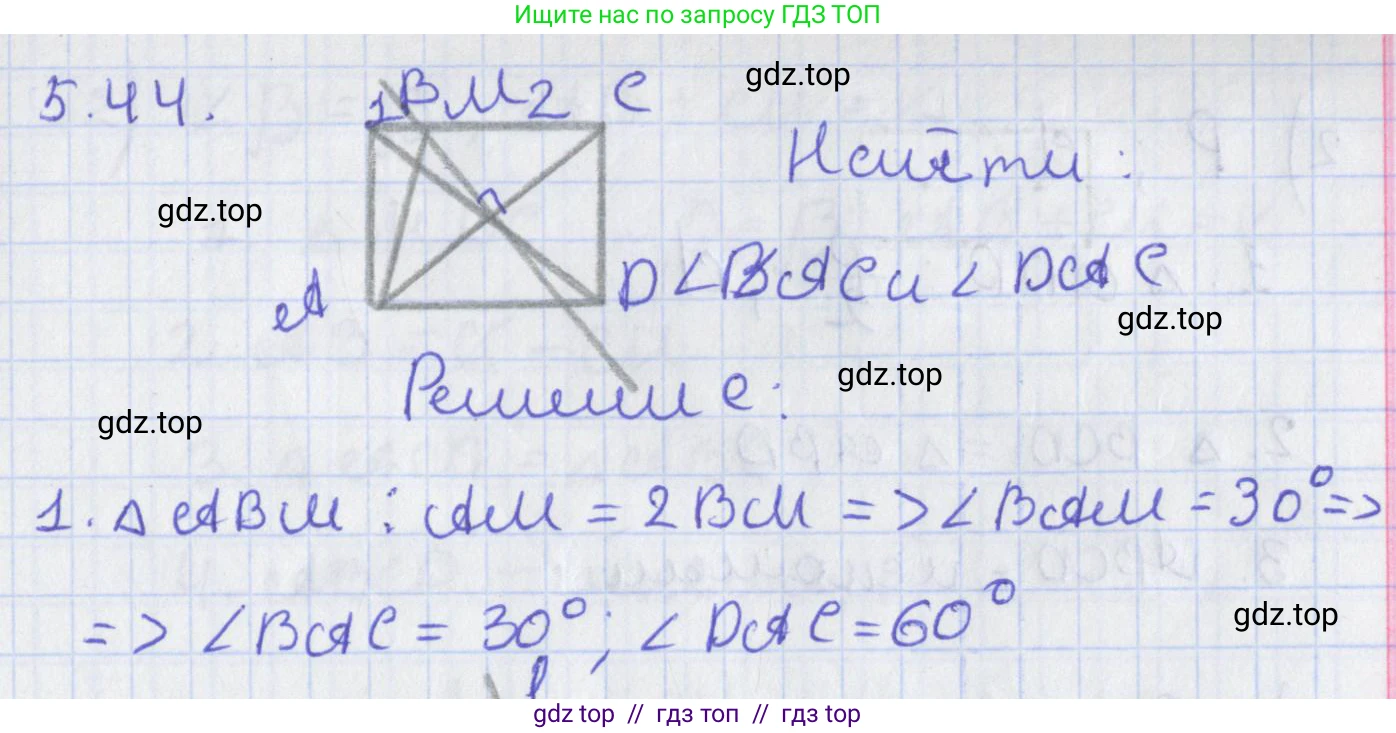 Ищите нас по запросу ГДЗ ТОП
5.44. 1 B M 2 C
gdz.top
Найти:
gdz.top
A D ∠BAC и ∠DAC
gdz.top
Решение:
gdz.top
gdz.top
1. △ABM: AM = 2BM => ∠BAM = 30° =>
=> ∠BAC = 30°; ∠DAC = 60°
gdz.top
gdz top // гдз топ // гдз top